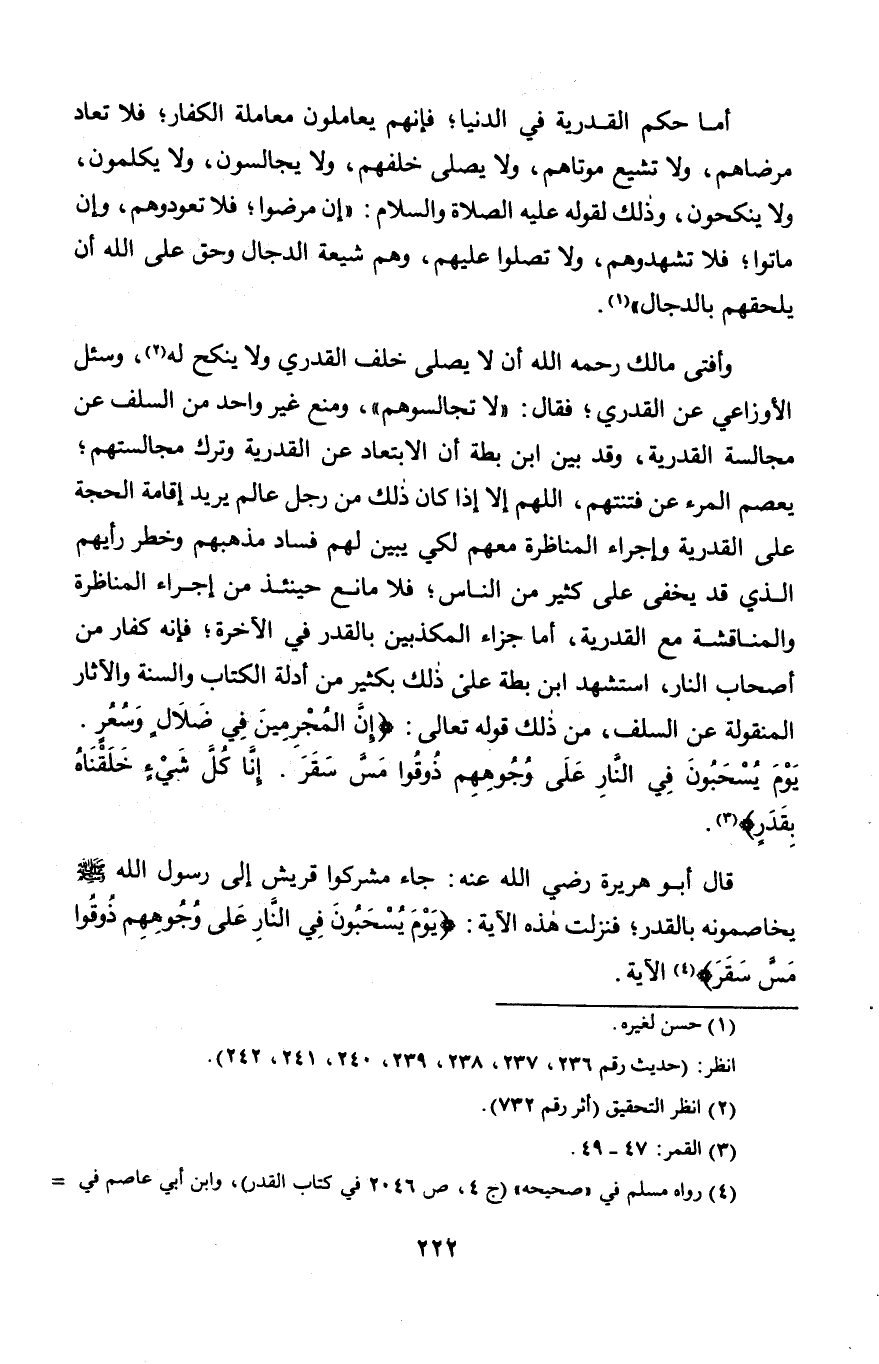 أما حكم القدرية في الدنيا؛ فإنهم يعاملون معاملة الكفار؛ فلا تعاد
مرضاهم، ولا تشيع موتاهم، ولا يصلى خلفهم، ولا يجالسون، ولا يكلمون،
ولا ينكحون، وذٰلك لقوله عليه الصلاة والسلام: «إن مرضوا؛ فلا تعودوهم، وإن
ماتوا؛ فلا تشهدوهم، ولا تصلوا عليهم، وهم شيعة الدجال وحق على الله أن
يلحقهم بالدجال»(١).
وأفتى مالك رحمه الله أن لا يصلى خلف القدري ولا ينكح له(٢)، وسئل
الأوزاعي عن القدري؛ فقال: «لا تجالسوهم»، ومنع غير واحد من السلف عن
مجالسة القدرية، وقد بين ابن بطة أن الابتعاد عن القدرية وترك مجالستهم؛
يعصم المرء عن فتنتهم، اللهم إلا إذا كان ذٰلك من رجل عالم يريد إقامة الحجة
على القدرية وإجراء المناظرة معهم لكي يبين لهم فساد مذهبهم وخطر رأيهم
الـذي قد يخفى على كثير من النـاس؛ فلا مانـع حينئـذ من إجـراء المناظرة
والمنـاقشـة مع القدرية، أما جزاء المكذبين بالقدر في الآخرة؛ فإنه كفار من
أصحاب النار، استشهد ابن بطة على ذٰلك بكثير من أدلة الكتاب والسنة والآثار
المنقولة عن السلف، من ذٰلك قوله تعالى: ﴿إِنَّ المُجْرِمِينَ فِي ضَلَالٍ وَسُعُرٍ .
يَوْمَ يُسْحَبُونَ فِي النَّارِ عَلَى وُجُوهِهِم ذُوقُوا مَسَّ سَقَرَ . إِنَّا كُلَّ شَيْءٍ خَلَقْنَاهُ
بِقَدَرٍ﴾(٣).
قال أبـو هريرة رضي الله عنه: جاء مشركوا قريش إلى رسول الله ﷺ
يخاصمونه بالقدر؛ فنزلت هٰذه الآية: ﴿يَوْمَ يُسْحَبُونَ فِي النَّارِ عَلى وُجُوهِهِم ذُوقُوا
مَسَّ سَقَرَ﴾(٤) الآية.
(١) حسن لغيره.
انظر: (حديث رقم ٢٣٦، ٢٣٧، ٢٣٨، ٢٣٩، ٢٤٠، ٢٤١، ٢٤٢).
(٢) انظر التحقيق (أثر رقم ٧٣٢).
(٣) القمر: ٤٧ - ٤٩.
(٤) رواه مسلم في «صحيحه» (ج ٤، ص ٢٠٤٦ في كتاب القدر)، وابن أبي عاصم في =
٢٢٢